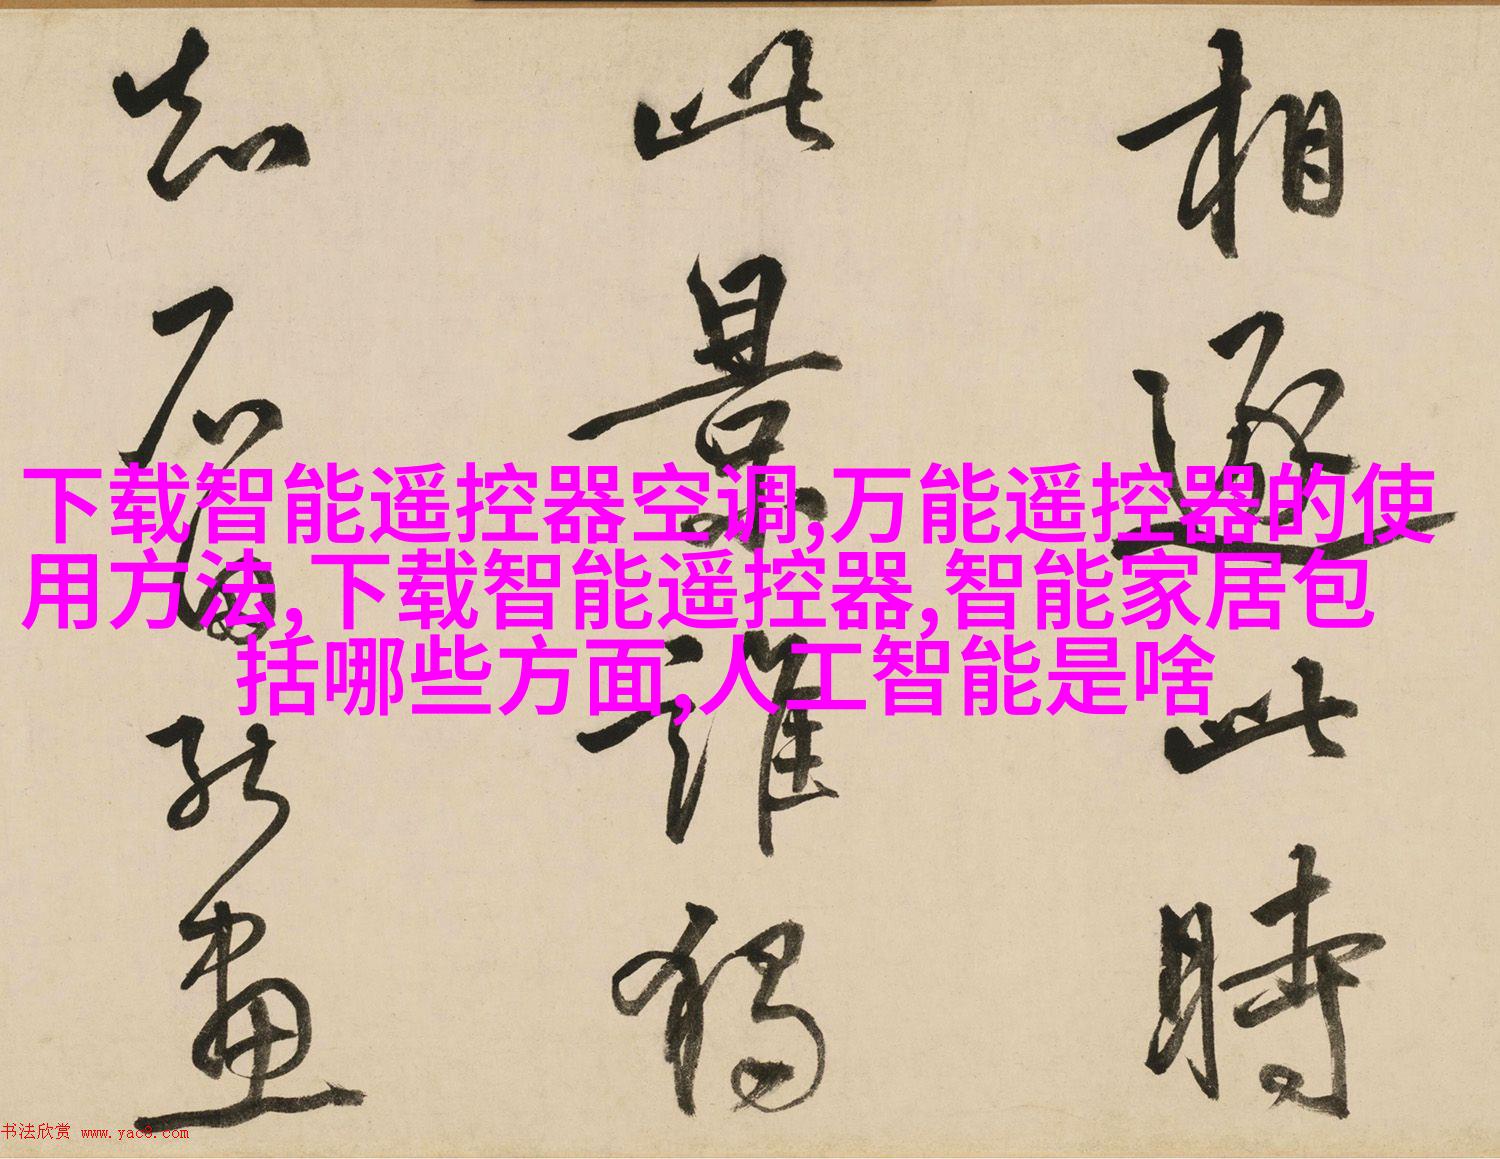 相逐此時
此景誰獨
知石角能畫
下载智能遥控器空调,万能遥控器的使
用方法,下载智能遥控器,智能家居包
括哪些方面,人工智能是啥
书法欣赏 www.yac8.com